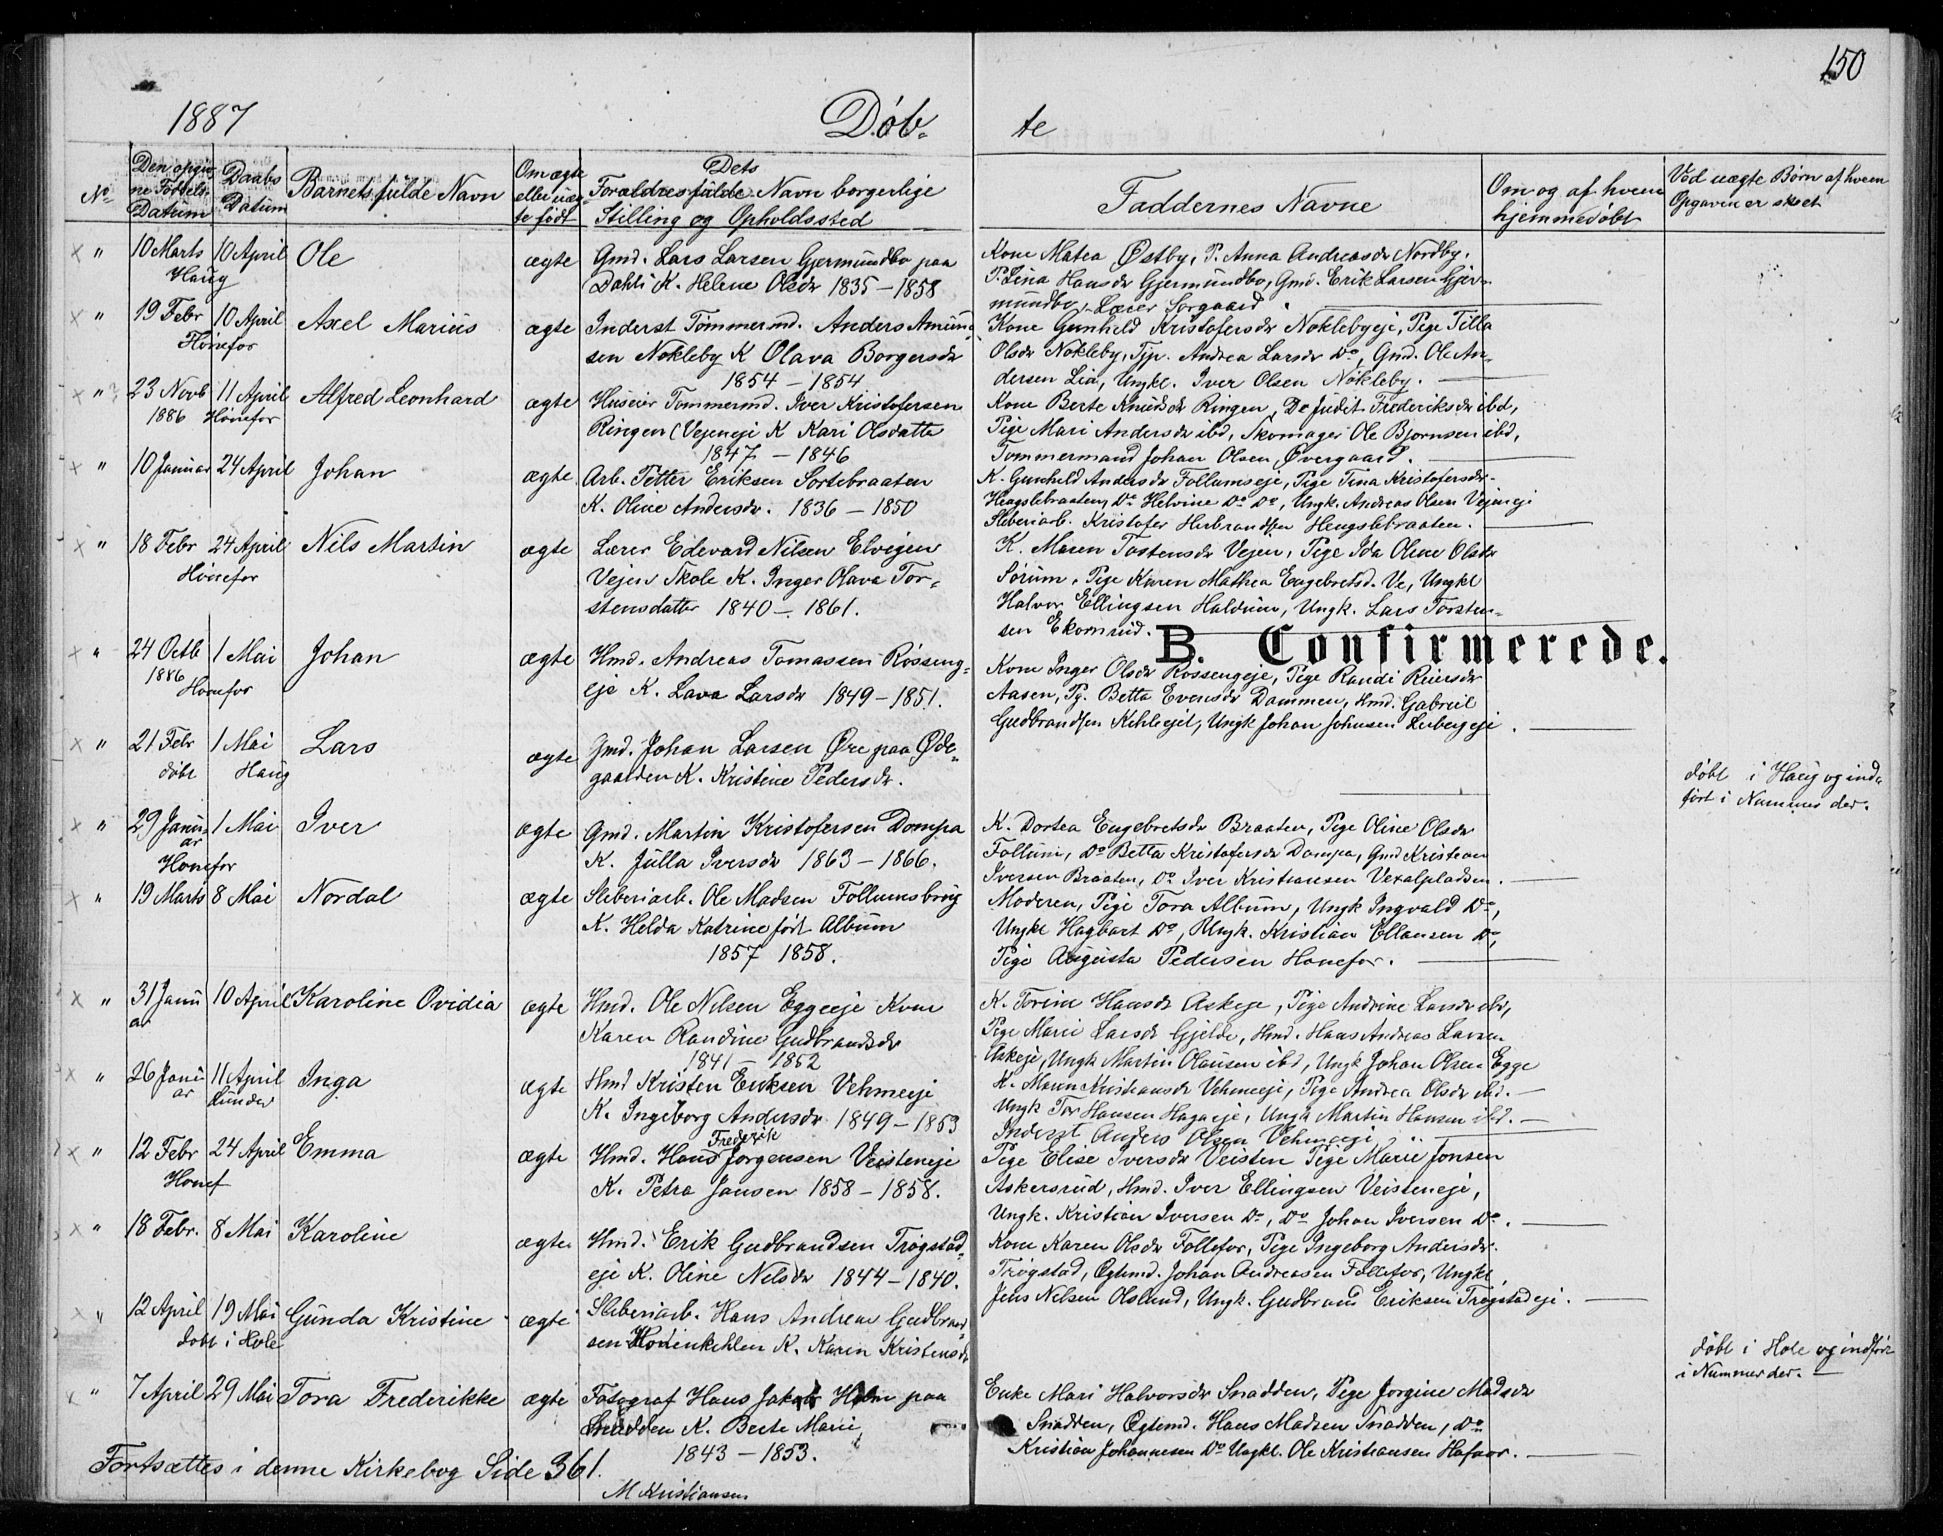 150
1887 Döb- te
No
Den opgivne Fødsels Datum
Daabs Datum
Barnets fulde Navn
Om ægte eller uægte født
Dets Forældres fulde Navn borgerlige Stilling og Opholdssted
Faddernes Navne
Om og af hvem hjemmedöbt
Ved uægte Børn af hvem Opgaven er skeet
" 10 Marts 10 April Ole ægte Gmd. Lars Larsen Gjermundbo paa
Haug Dahli K. Helene Olsdr 1835 – 1858
Kone Matea Østby, P. Anna Andreasdr Nordby,
P. Lina Hansdr Gjermundbo, Gmd. Erik Larsen Gjer-
mundbo, Lærer Sorgaard
" 19 Febr 10 April Axel Marius ægte Inderst Tömmermd. Anders Amund-
Hönefos sen Nökleby K Olava Borgersdr
1854 – 1854
Kone Gunhild Kristofersdr Noklebyeje, Pige Tilla
Olsdr Nökleby, Tjp. Andrea Larsdr Do, Gmd. Ole An-
dersen Lia, Ungkl. Iver Olsen Nökleby.
" 23 Novb 11 April Alfred Leonhard ægte Huseier Tommermd. Iver Kristofersen
1886 Hönefos Ringen (Vejeneje K Kari Olsdatte
1847 – 1846
Kone Berte Knudsdr Ringen, Do Judit Frederiksdr ibd,
Pige Mari Andersdr ibd, Skomager Ole Bjornsen ibd,
Tommermand Johan Olsen Øvergaard.
" 10 Januar 24 April Johan ægte Arb. Petter Eriksen Sortebraaten
K. Oline Andersdr. 1836 – 1850
K. Gunhild Andersdr Follumseje, Pige Tina Kristofersdr
Hengslebraaten, Do Helvine Do Do, Ungk. Andreas Olsen Vejeneje
Sleberiarb. Kristofer Hilbrandsen Hengslebraaten.
" 18 Febr 24 April Nils Martin ægte Lærer Edevard Nilsen Elvigen
Hönefos Vejen Skole K. Inger Olava Tor-
stensdatter 1840 – 1861.
K. Maren Tostensdr Vejen, Pige Ida Oline Olsdr
Sörum, Pige Karen Mathea Engebretsd. Ve, Ungkl
Halvor Ellingsen Haldum, Ungk. Lars Torsten-
sen Ekornrud.
B. Confirmerede.
" 24 Octb 1 Mai Johan ægte Hmd. Andreas Tomassen Rösseng-
1886 Honefos eje K. Lava Larsdr 1849 – 1851.
Kone Inger Olsdr Rossengeje, Pige Randi Reiersdr
Aasen, Pg. Betta Evensdr Dammen, Hmd. Gabriel
Gudbrandsen Kihleejet, Ungk Johan Johnsen Lerbergeje.
" 21 Febr 1 Mai Lars ægte Gmd. Johan Larsen Øre paa Øde-
döbt Haug gaarden K. Kristine Pedersdr.
döbt i Haug og ind-
fört i Nummer der.
" 29 Janu- 1 Mai Iver ægte Gmd. Martin Kristofersen Dompa
ar
Honefos K. Julla Iversdr 1863 – 1866.
K. Dortea Engebretsdr Braaten, Pige Oline Olsdr
Follum, Do Betta Kristofersdr Dompa, Gmd Kristian
Iversen Braaten, Do Iver Kristiansen Vexalpladsen.
" 19 Marts 8 Mai Nordal ægte Sleberiarb. Ole Madsen Follumsbrug
K. Helda Katrine fört Album
1857 1858.
Moderen, Pige Tora Album, Ungk Ingvald Do,
Ungkl Hagbart Do, Ungk. Kristian Ellansen Do,
Pige Augusta Pedersen Honefos.
" 31 Janu 10 April Karoline Ovidia ægte Hmd. Ole Nilsen Eggeeje Kone
ar Karen Randine Gudbrandsdr
1841 – 1852
K. Torine Hansdr Askeje, Pige Andrine Larsdr ibd,
Pige Marie Larsdr Gjelde, Hmd. Hans Andreas Larsen
Askeje, Ungk Martin Olausen ibd, Ungk Johan Olsen Egge
" 26 Janu- 11 April Inga ægte Hmd Kristen Eriksen Vehmeeje
ar Lunder K. Ingeborg Andersdr 1849 – 1853
K. Maren Kristiansdr Vehmeeje, Pige Andrea Olsdr ibd.
Ungk Tor Hansen Hagaeje, Ungk Martin Hansen ibd.
Inderst Anders Olsen Vehmeeje
" 12 Febr 24 April Emma ægte Hmd. Hans Frederik Jorgensen Veisteneje
Honef K. Petra Jansen 1858 – 1858.
Pige Elise Iversdr Veisten Pige Marie Jonsen
Askersrud, Hmd. Iver Ellingsen Veisteneje,
Ungk. Kristian Iversen Do, Do Johan Iversen Do.
" 18 Febr. 8 Mai Karoline ægte Hmd. Erik Gudbrandsen Trögstad-
eje K. Oline Nelsdr 1844 – 1840.
Kone Karen Olsdr Follefos, Pige Ingeborg Andersdr
Trögstad, Ogtmd. Johan Andreasen Follefos, Ungkl
Jens Nilsen Oslund, Ungk. Gudbrand Eriksen Trögstadeje.
" 12 April 19 Mai Gunda Kristine ægte Sleberiarb. Hans Andreas Gudbrand-
döbt i Hole sen Hodinkihlen K. Karen Kristensdr
döbt i Hole og indför
i Nummer der.
" 7 April 29 Mai Tora Frederikke ægte Fotograf Hans Jakob Holm paa
Snadden K. Berte Marie
1843 – 1853.
Enke Mari Halvorsdr Snadden, Pige Jorgine Madsdr
Snadden, Ogtmd. Hans Madsen Snadden, Do
Kristian Johannesen Do Ungkl. Ole Kristiansen Hafnor.
Fortsættes i denne Kirkebog Side 361.
M Kristiansen